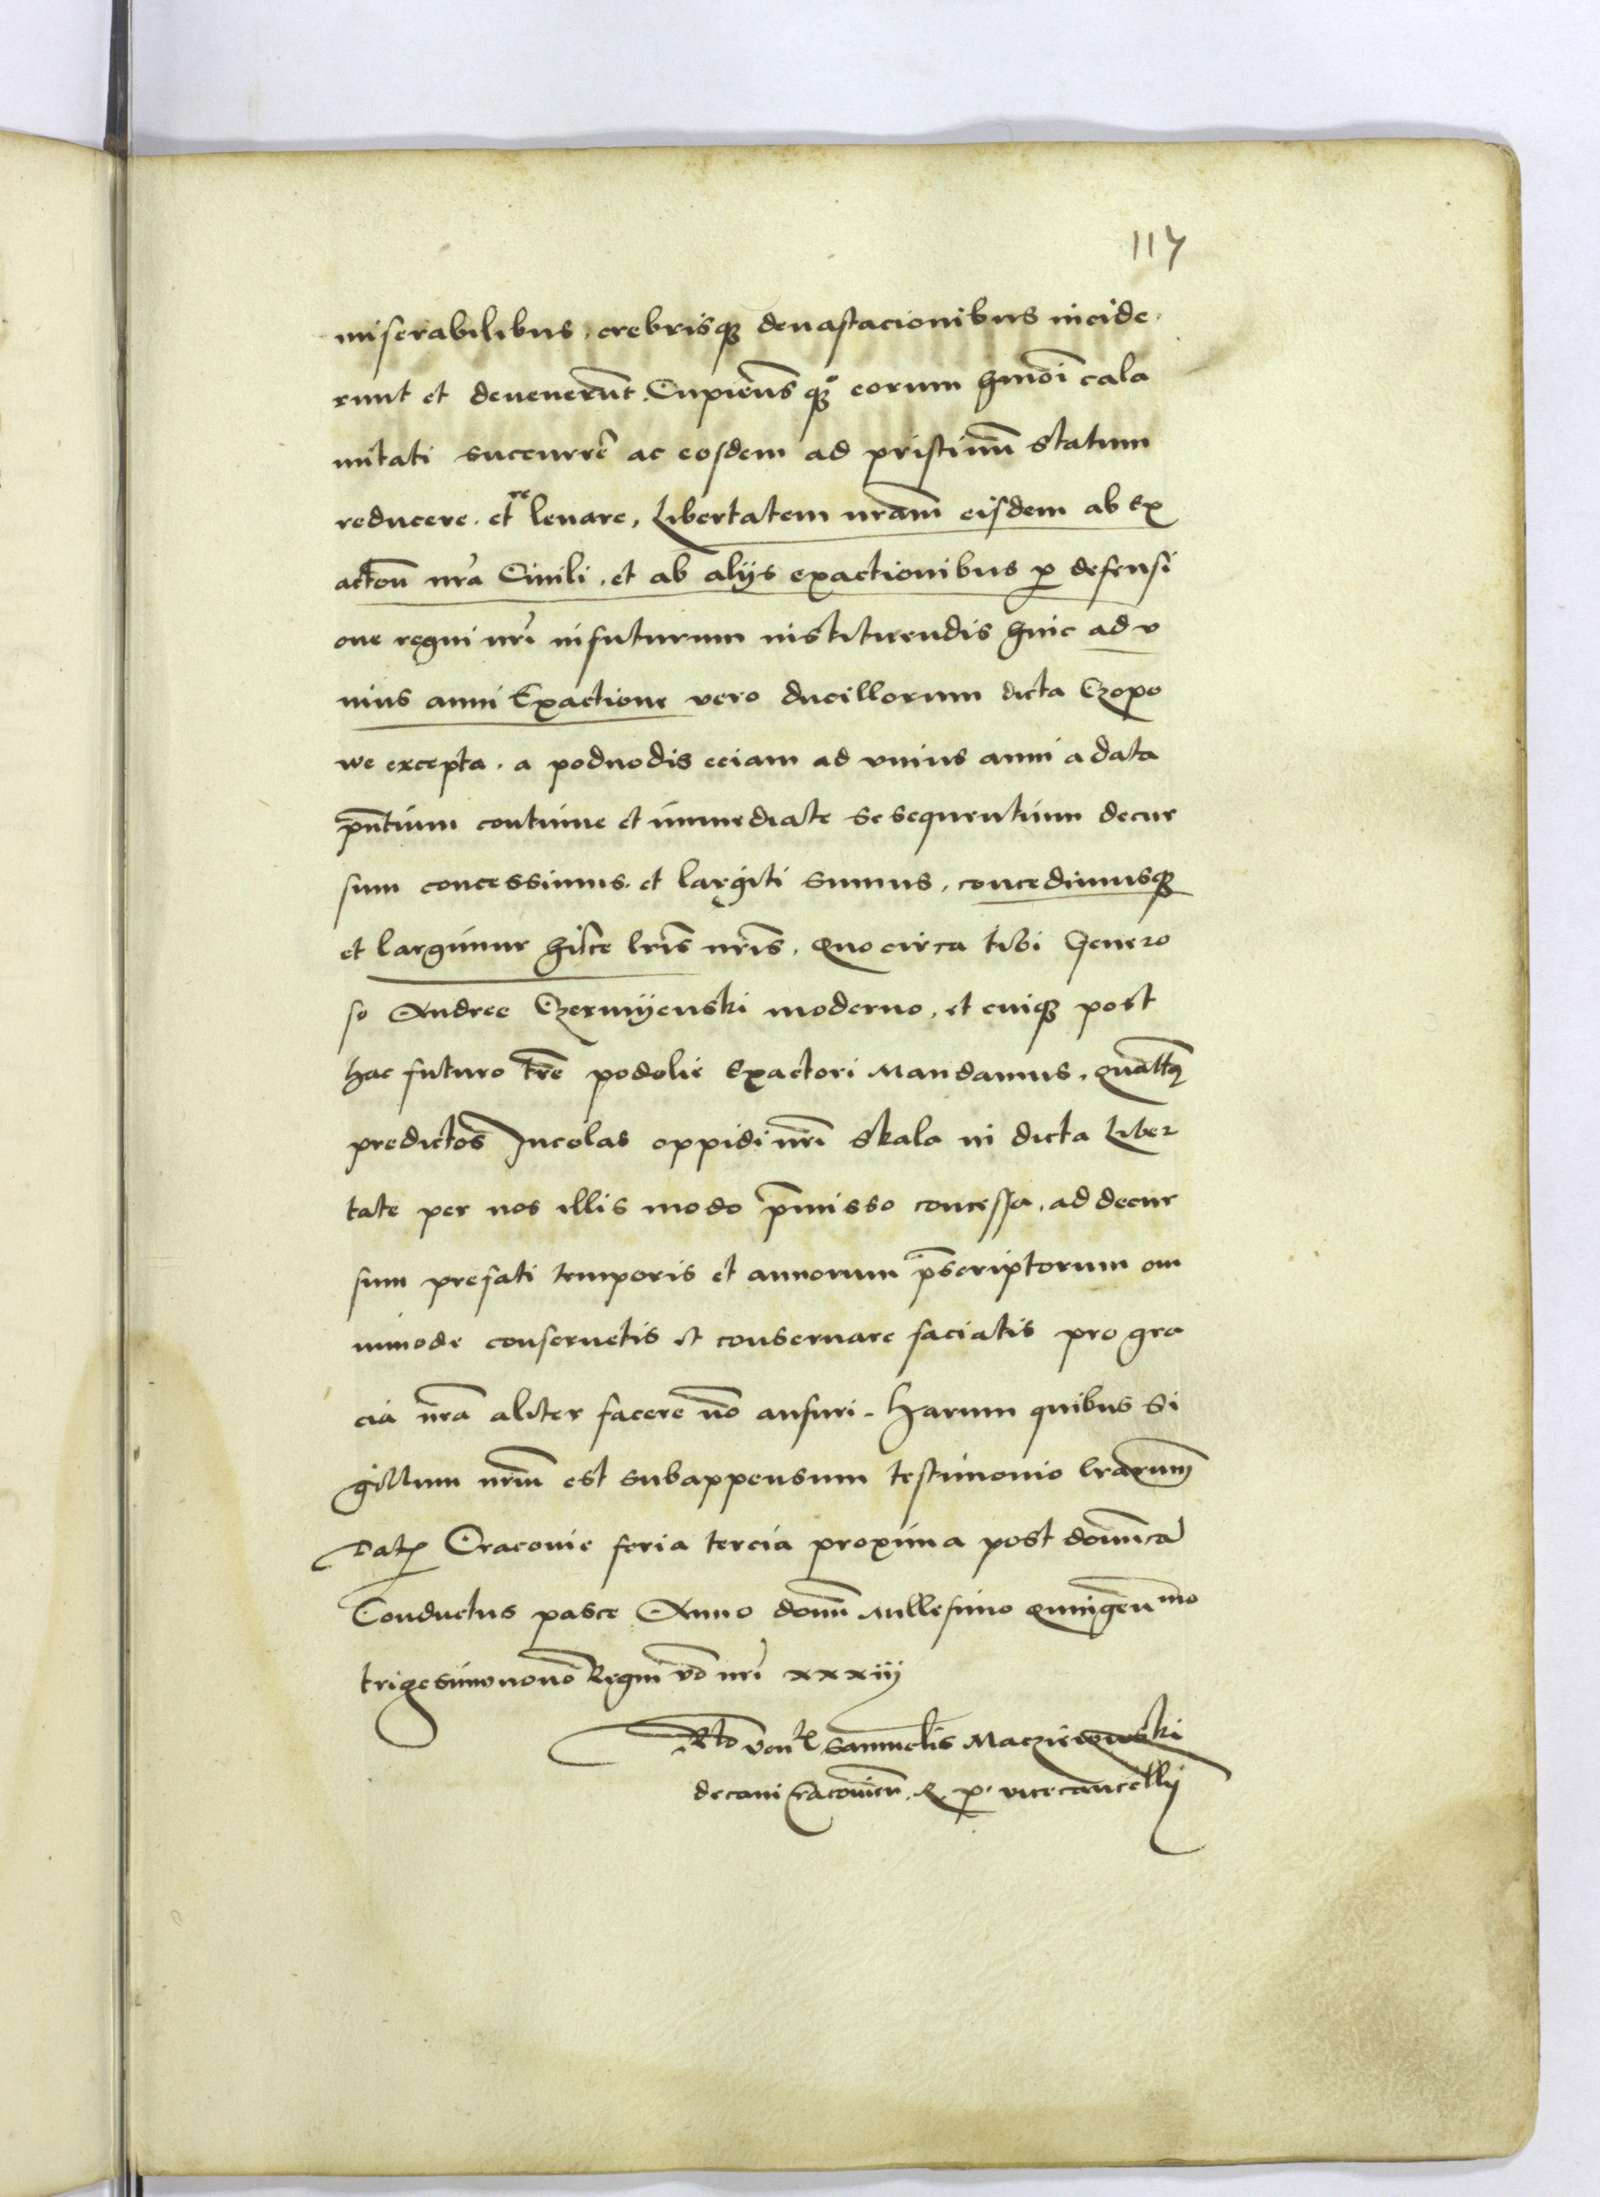 117
miserabilibus, crebrisq₃ deuastacionibus incide,
runt et deuenerūt. Cupiens q₃ eorum hmōi cala
mitati succurrē ac eosdem ad pristinū statum
reducere. et re leuare, Libertatem nrām eisdem ab Ex
actōn nrā Ciuili, et ab alijs exactionibus p defensi
one regni nrī infuturum instituendis hinc ad v
nius anni Exactione vero ducillorum dicta Czopo
we excepta, a poduodis eciam ad vnius anni a data
pn̄tium continue et immediate se sequentium decur
sum concessimus, et largiti sumus, concedimusq₃
et largimur hisce lrīs nrīs, Quo circa tibi Genero
so Andree Czermyenski moderno, et cuiq₃ post
hac futuro trē podolie Exactori Mandamus, quatt₉
predictos Incolas oppidi nrī Skala in dicta Liber
tate per nos illis modo pm̄isso concessa, ad decur
sum prefati temporis et annorum pscriptorum om
nimode conseruetis et conseruare faciatis pro gra
cia nrā aliter facere nō ausuri. Harum quibus Si
gillum nrūm est subappensum testimonio lrārum
Dat₉ Cracouie feria tercia proxima post domīca
Conductus pasce Anno domī Millesimo Quingen mo
trigesimo nono Regni vō nrī xxxiij
Rtō ven^l Samuelis Macziewski
decani Cracouien. R. p. vicecancellij